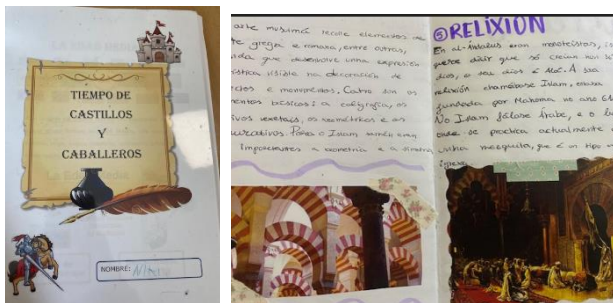 TIEMPO DE
CASTILLOS
Y
CABALLEROS
NOMBRE:
arte musulmá recolle elementos da
arte grega e romana, entre outras,
que desenvolve unha expresión
artística visible na decoración de
e monumentos. Catro son os
elementos básicos: a caligrafía, os
motivos vexetais, os xeométricos e os
figurativos. Para o Islam tamén eran
importantes a xeometría e a simetría
⑤ RELIXION
En al-Andalus eran monoteístas, is
quere dicir que só creían nun só
dios, o seu dios é Alá. A súa
relixión chamábase Islam,
fundada por Mahoma no ano
No Islam fálase árabe, e o
onde se practica actualmente
unha mezquita, que é un tipo